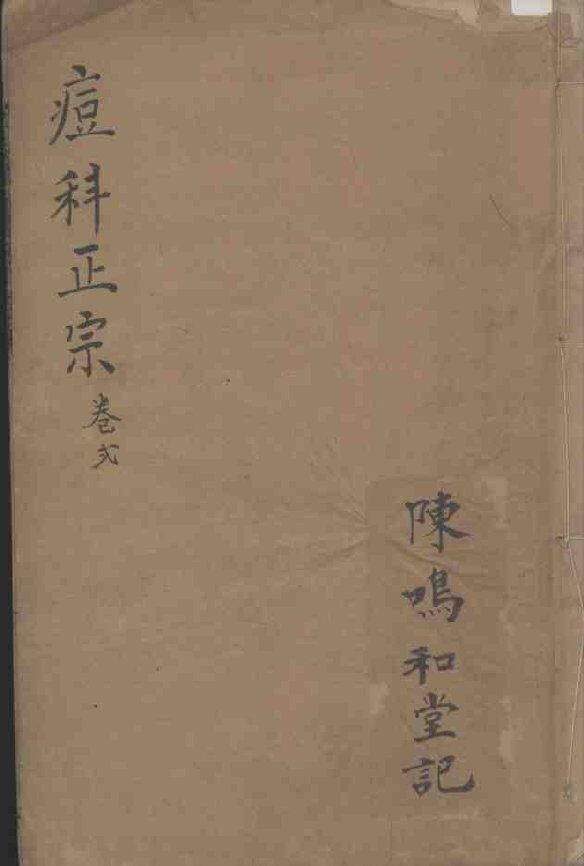 痘科正宗
卷弍
陳鳴和堂記